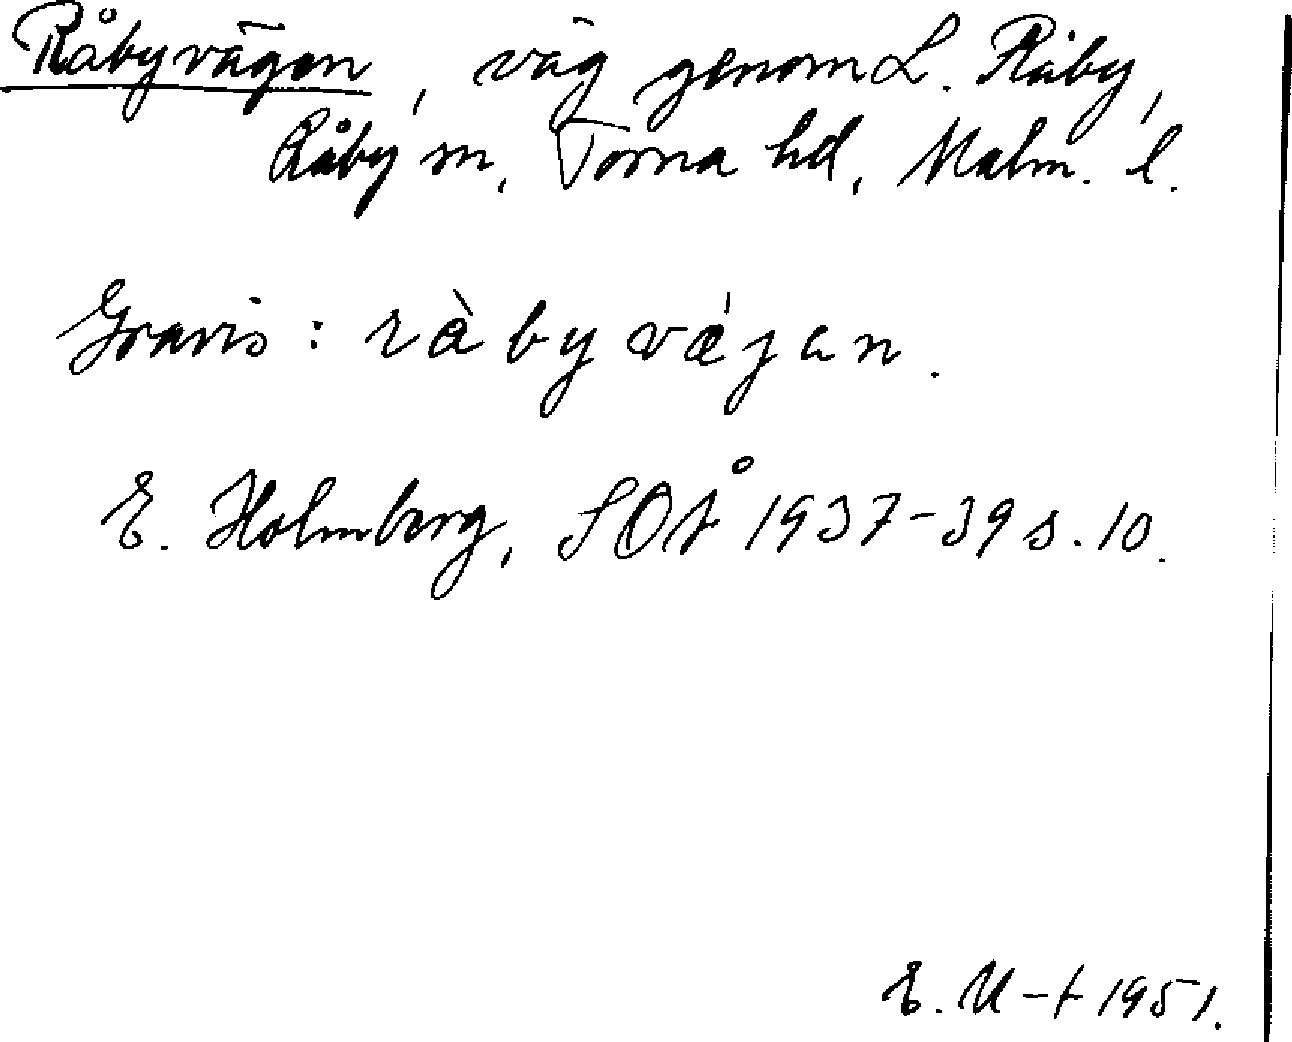 Råbyvägen, väg genom L. Råby,
Råby sn, Torna hd, Malm. l.
Gravis: ràbyvǽjan.
E. Holmberg, SOÅ 1937-39 s. 10.
E. U-t 1951.